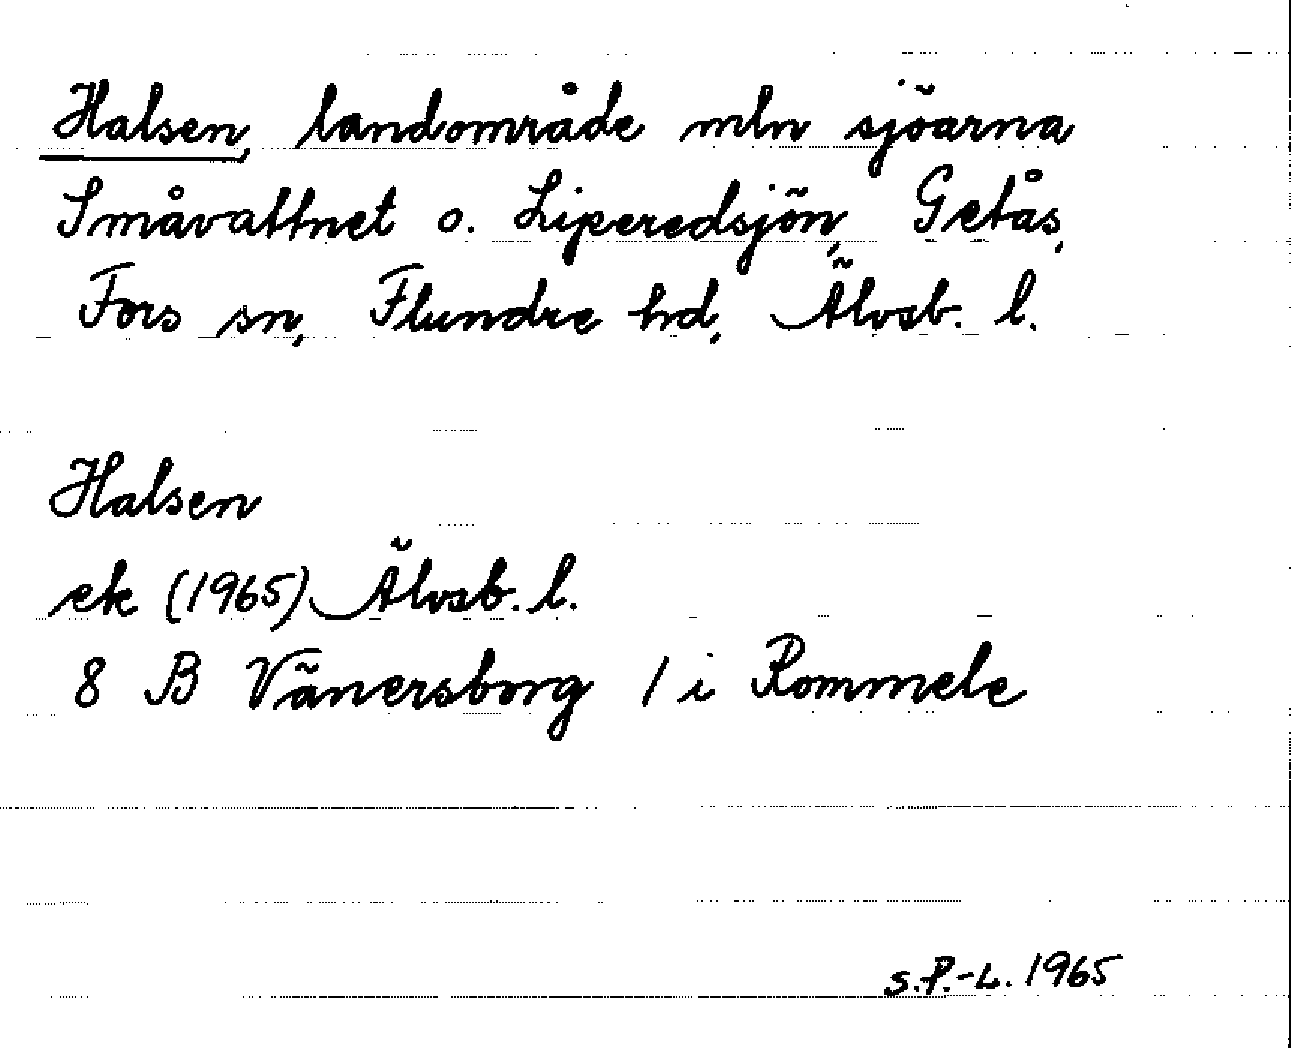 Halsen, landområde mln sjöarna
Småvattnet o. Liperedsjön, Getås,
Fors sn, Flundre hd, Älvsb. l.
Halsen
ek (1965) Älvsb. l.
8 B Vänersborg 1 i Rommele
S.P.-L. 1965